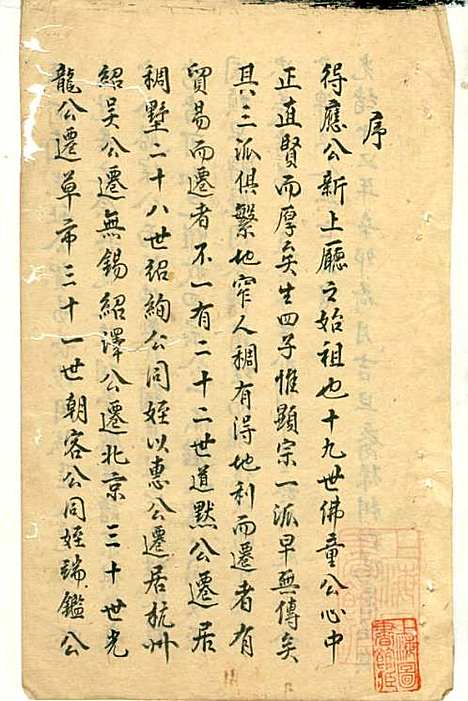 序
得應公新上廳之始祖也十九世佛童公心中
正直賢而厚矣生四子惟顯宗一派早無傳矣
其三派俱繁地窄人稠有得地利而遷者有
貿易而遷者不一有二十二世道默公遷居
稠墅二十八世紹絢公同姪以惠公遷居杭州
紹吴公遷無錫紹澤公遷北京三十世光
龍公遷草市三十一世朝客公同姪瑞鑑公
上海圖
書館藏